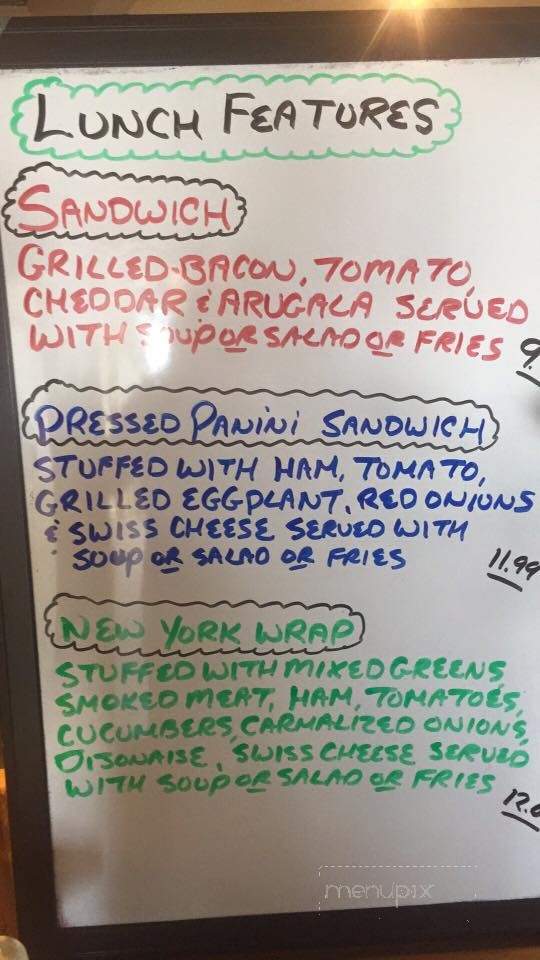 LUNCH FEATURES
SANDWICH
GRILLED-BACON, TOMATO,
CHEDDAR & ARUGALA SERVED
WITH SOUP OR SALAD OR FRIES 9.
PRESSED PANINI SANDWICH
STUFFED WITH HAM, TOMATO,
GRILLED EGGPLANT, RED ONIONS
& SWISS CHEESE SERVED WITH
SOUP OR SALAD OR FRIES 11.99
NEW YORK WRAP
STUFFED WITH MIXED GREENS,
SMOKED MEAT, HAM, TOMATOES,
CUCUMBERS, CARMALIZED ONIONS,
DIJONAISE, SWISS CHEESE SERVED
WITH SOUP OR SALAD OR FRIES 12.
menupix